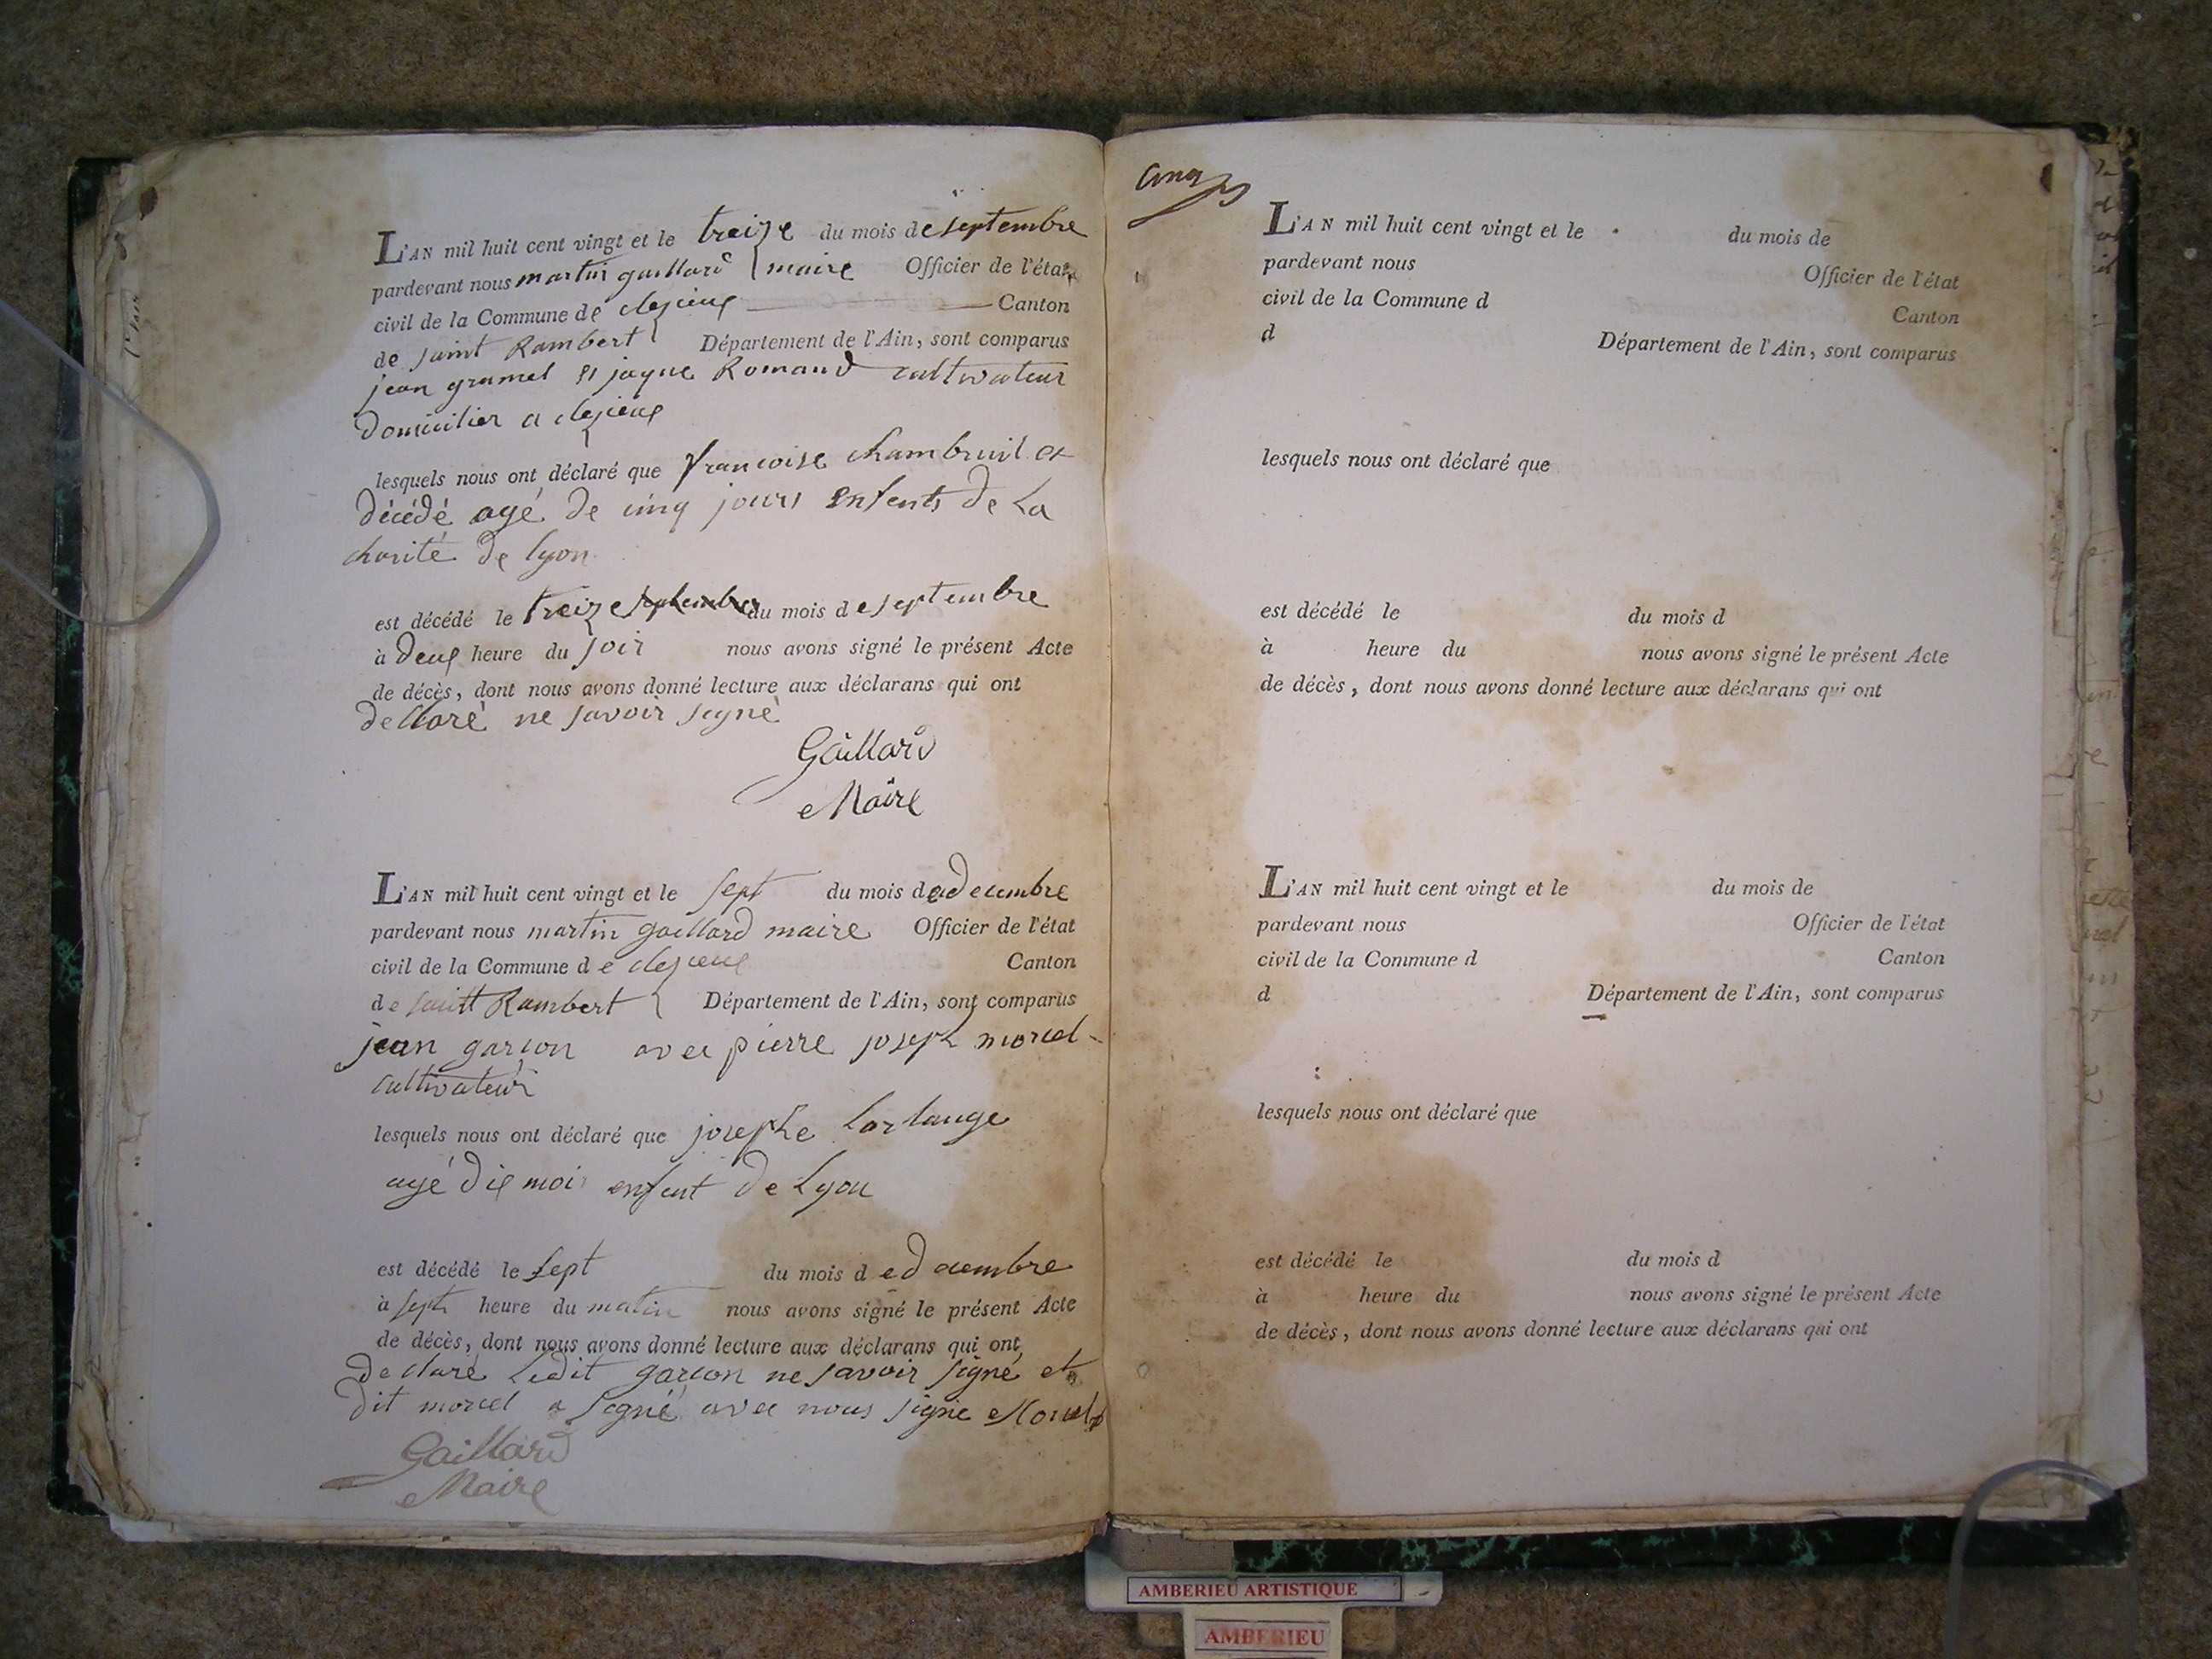 L'AN mil huit cent vingt et le treize du mois de septembre
pardevant nous martin gaillard maire Officier de l'état
civil de la Commune de cleyieux Canton
de saint Rambert Département de l'Ain, sont comparus
jean gramel et jaque Romand cultivateur
domicilier a cleyieux
lesquels nous ont déclaré que francoise chambruil et
décédé agé de cinq jours enfents de La
charité de lyon
est décédé le treize septembre du mois de septembre
à deux heure du soir nous avons signé le présent Acte
de décès, dont nous avons donné lecture aux déclarans qui ont
declaré ne savoir signé
Gaillard
Maire
L'AN mil huit cent vingt et le sept du mois de decembre
pardevant nous martin gaillard maire Officier de l'état
civil de la Commune de cleyieux Canton
de saint Rambert Département de l'Ain, sont comparus
jean garcon avec pierre joseph morcel
cultivateur
lesquels nous ont déclaré que josephe
agé dix moi enfent de Lyon
est décédé le sept du mois de decembre
à sept heure du matin nous avons signé le présent Acte
de décès, dont nous avons donné lecture aux déclarans qui ont
declaré Ledit garcon ne savoir signé et
dit morcel a signé avec nous signé Morcel
Gaillard
Maire
cinq
L'AN mil huit cent vingt et le du mois de
pardevant nous Officier de l'état
civil de la Commune d Canton
d Département de l'Ain, sont comparus
lesquels nous ont déclaré que
est décédé le du mois d
à heure du nous avons signé le présent Acte
de décès, dont nous avons donné lecture aux déclarans qui ont
L'AN mil huit cent vingt et le du mois de
pardevant nous Officier de l'état
civil de la Commune d Canton
d Département de l'Ain, sont comparus
lesquels nous ont déclaré que
est décédé le du mois d
à heure du nous avons signé le présent Acte
de décès, dont nous avons donné lecture aux déclarans qui ont
AMBERIEU ARTISTIQUE
AMBERIEU